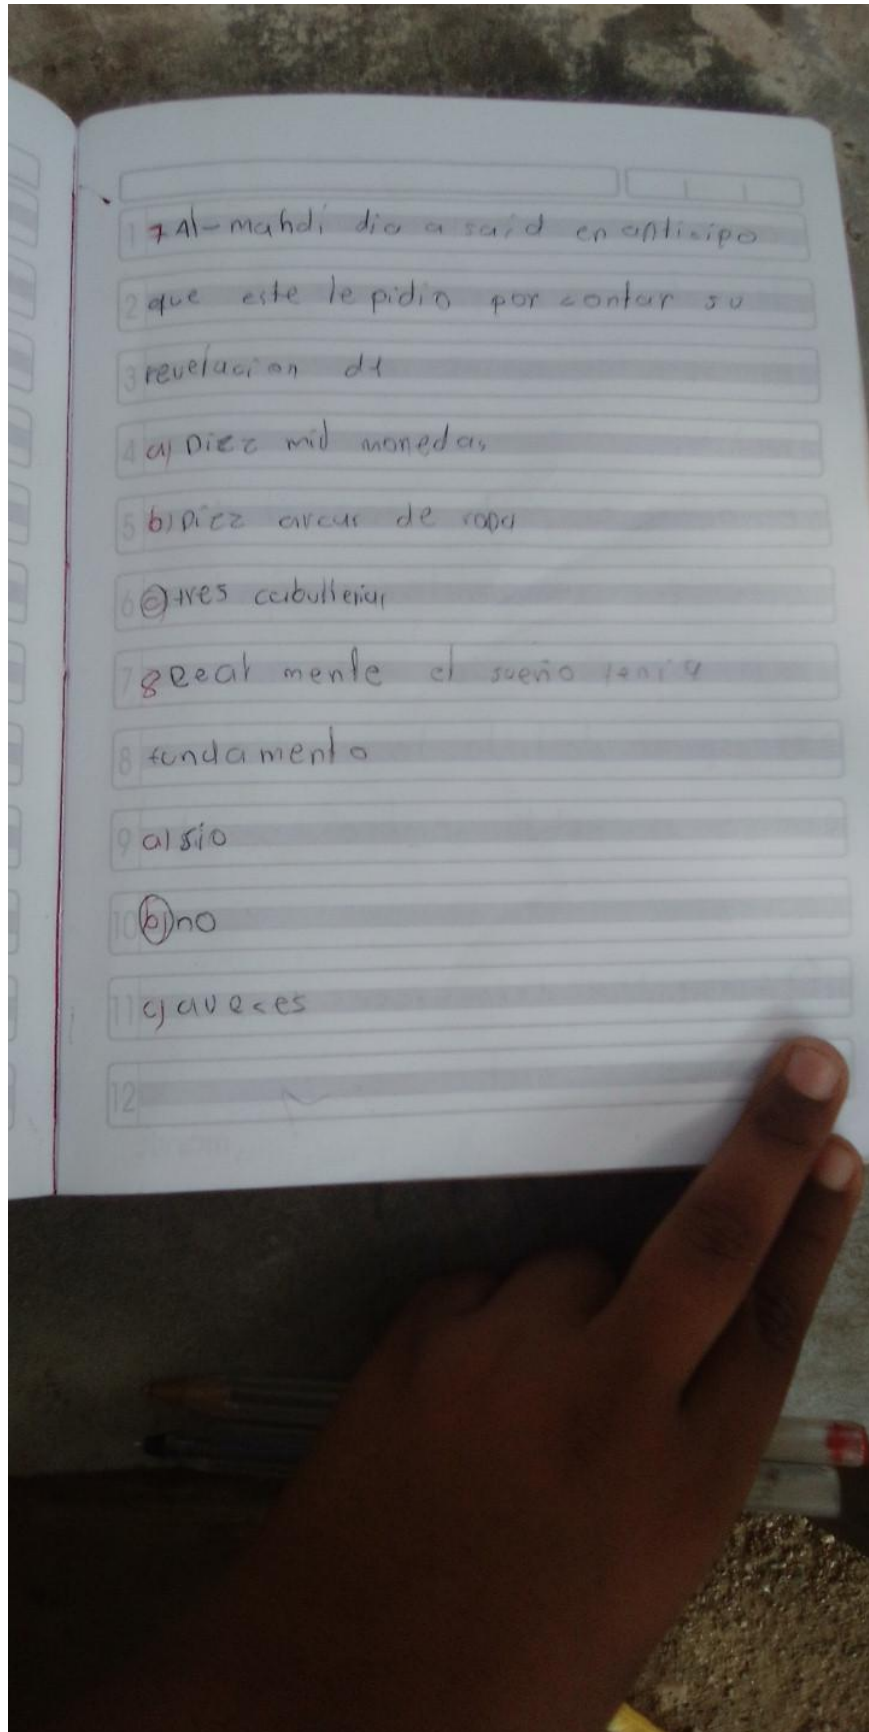 1 7 Al-mahdi dio a said en anticipo
2 que este le pidio por contar su
3 revelacion d1
4 a) Diez mil monedas
5 b) Diez arcas de ropa
6 c) tres caballerias
7 8 Real mente el sueño tenia
8 fundamento
9 a) sio
10 b) no
11 c) aveces
12